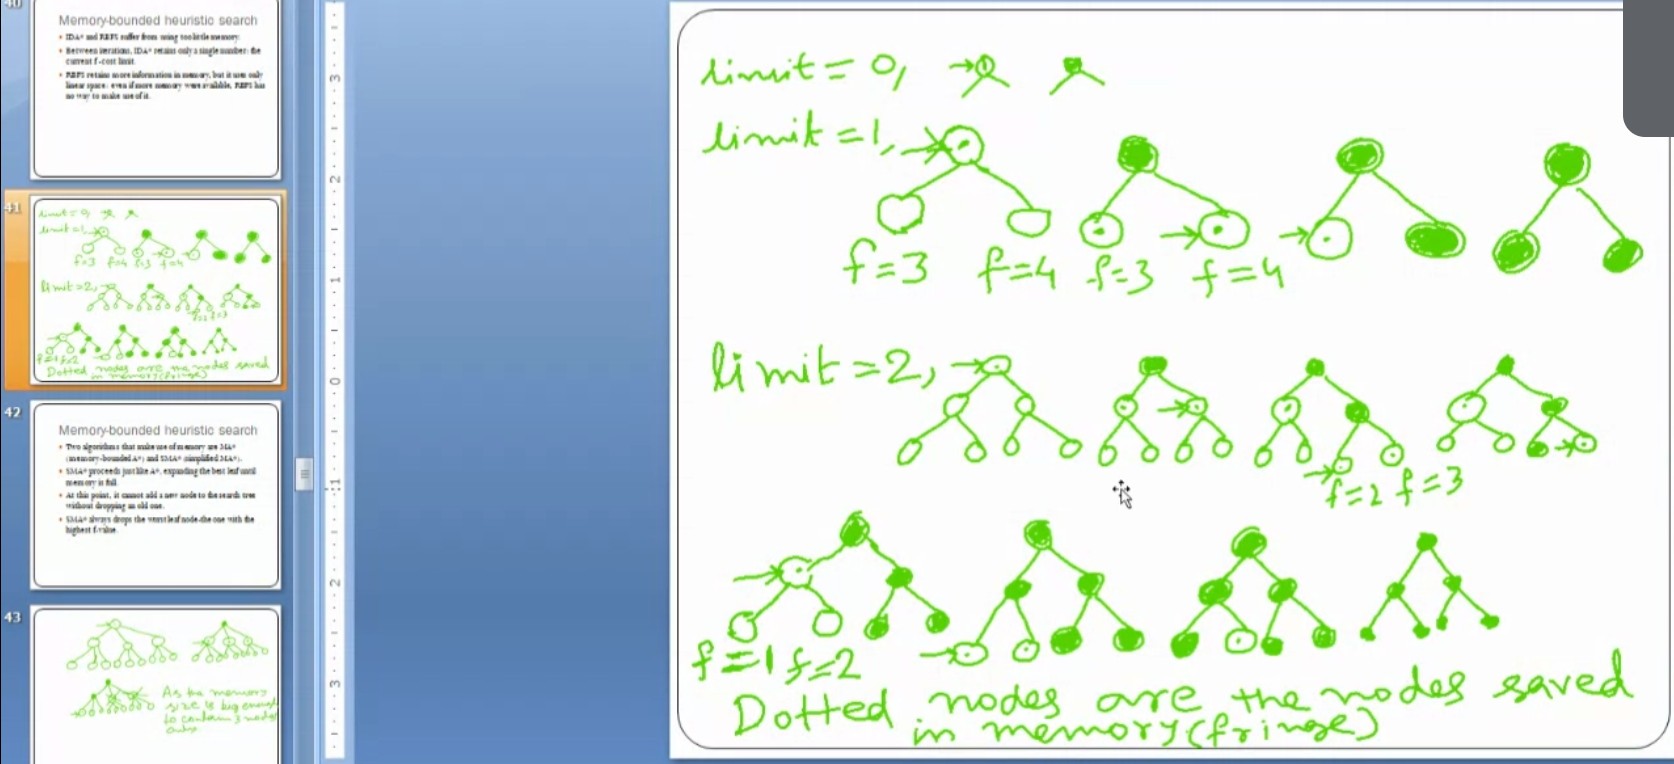 40
Memory-bounded heuristic search
• IDA* and RBFS suffer from using too little memory.
• Between iterations, IDA* retains only a single number: the
current f-cost limit.
• RBFS retains more information in memory, but it uses only
linear space: even if more memory were available, RBFS has
no way to make use of it.
41
limit = 0,
limit = 1,
f=3 f=4 f=3 f=4
limit = 2,
f=2 f=3
f=1 f=2
Dotted nodes are the nodes saved
in memory (fringe)
42
Memory-bounded heuristic search
• Two algorithms that make use of memory are MA*
(memory-bounded A*) and SMA* (simplified MA*).
• SMA* proceeds just like A*, expanding the best leaf until
memory is full.
• At this point, it cannot add a new node to the search tree
without dropping an old one.
• SMA* always drops the worst leaf node-the one with the
highest f-value.
43
As the memory
size is big enough
to contain 3 nodes
only
3
2
1
0
1
2
3
limit = 0,
limit = 1,
f=3 f=4 f=3 f=4
limit = 2,
f=2 f=3
f=1 f=2
Dotted nodes are the nodes saved
in memory (fringe)